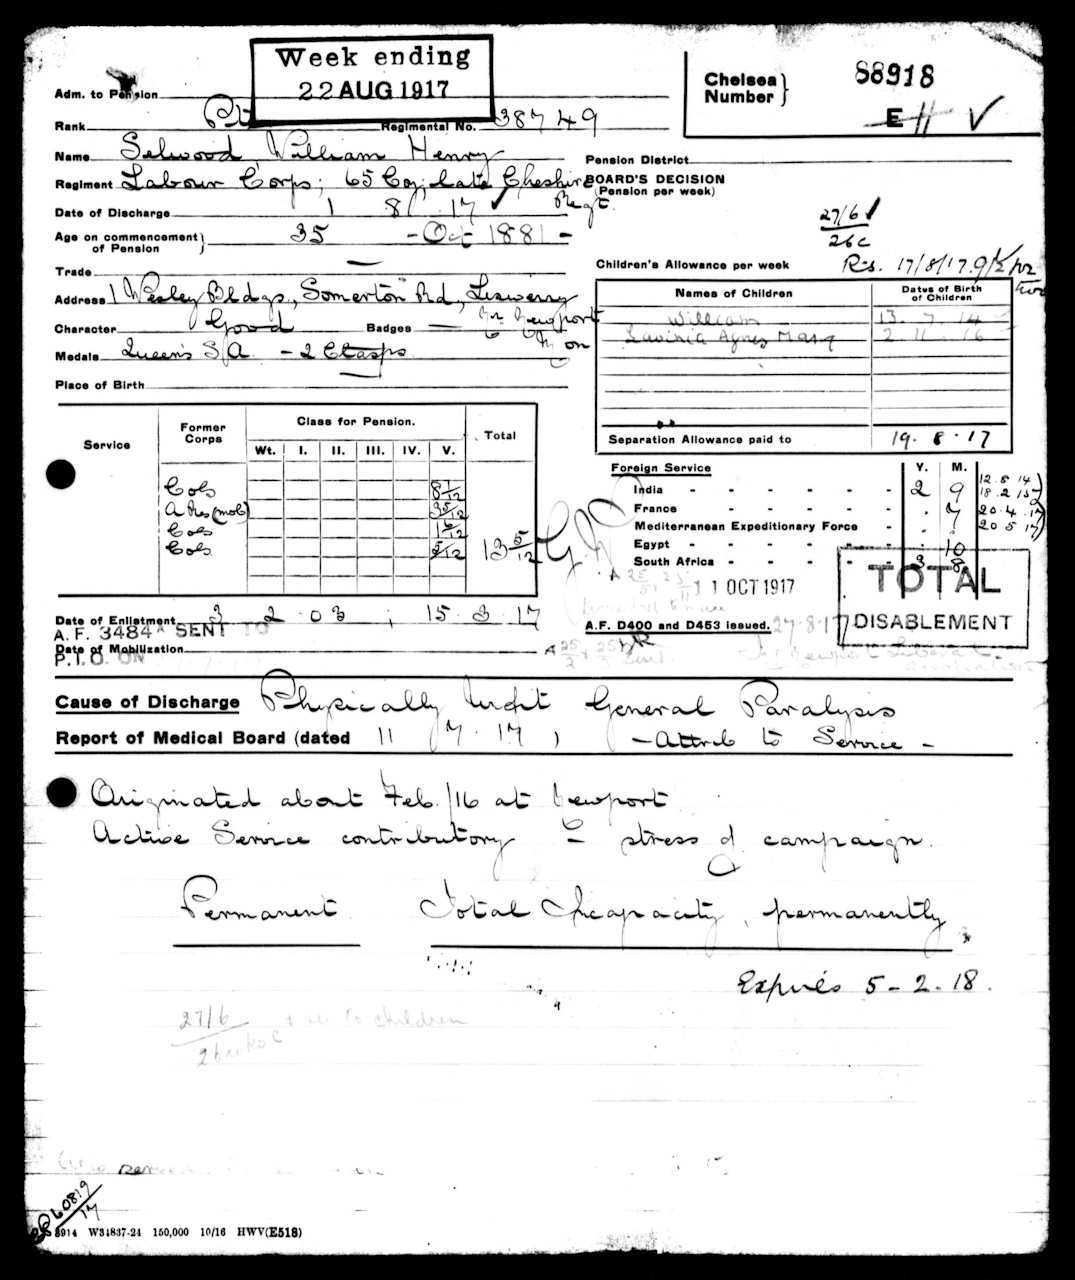 Week ending
22 AUG 1917
Chelsea Number } 88918
E H
Adm. to Pension
Rank Pte Regimental No. 38749
Name Selwood William Henry
Pension District
Regiment Labour Corps; 65 Coy; late Cheshire Regt.
BOARD'S DECISION
(Pension per week)
Date of Discharge 1 8 17
27/6
26 c
Age on commencement of Pension } 35 - Oct 1881 -
Children's Allowance per week Rs. 17/8/17. 9/2 for two
Trade
Address 1 Wesley Bldgs, Somerton Rd, Liswerry
Nr Newport
Mon
Character Good Badges —
Medals Queen's S/A. - 2 Clasps
Place of Birth
Names of Children Dates of Birth of Children
William 13. 7 14
Lavinia Agnes Mary 2. 11. 16
Separation Allowance paid to 19. 8. 17
Service Former Corps Class for Pension. Total
Wt. I. II. III. IV. V.
Cols 8 1/12
A Res (mob)
Cols
Cols 5/12 13 5/12
Foreign Service Y. M.
India - - - - - - 2 9
France - - - - - - 7
Mediterranean Expeditionary Force - -
Egypt - - - - - - 10
South Africa - - - - - 3 8
12. 8 14
18. 2 15
20. 4. 17
20 5 17
11 OCT 1917
TOTAL
DISABLEMENT
Date of Enlistment 3 2 03 ; 15. 3. 17
A. F. 3484A SENT TO
Date of Mobilization
P.I.O. ON
A.F. D400 and D453 issued. 27-8-17
Cause of Discharge Physically Unfit General Paralysis
Report of Medical Board (dated 11 7. 17 ) - Attrib to Service -
Originated about Feb. /16 at Newport
Active Service contributory stress of campaign.
Permanent Total Incapacity, permanently
Expires 5 - 2 - 18.
27/6
children
60819/17
8914 W31837-24 150,000 10/16 HWV(E518)